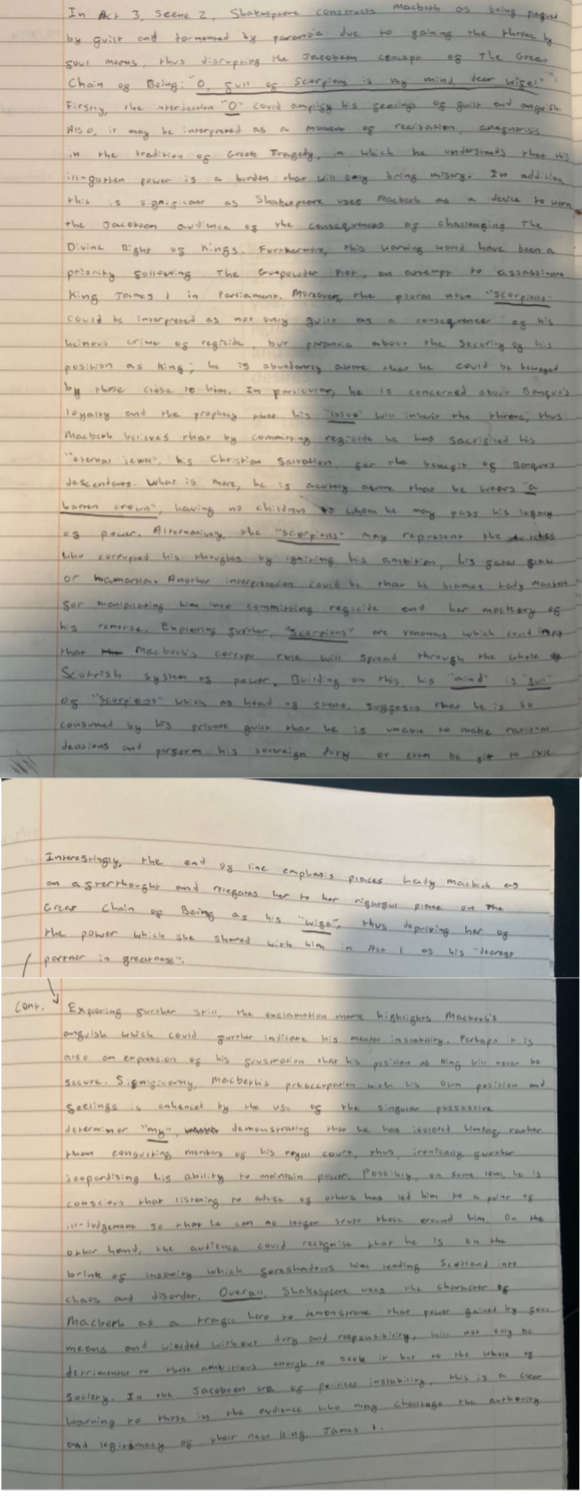 In Act 3, Scene 2, Shakespeare constructs Macbeth as being plagued
by guilt and tormented by paranoia due to gaining the throne by
foul means, thus disrupting the Jacobean concept of The Great
Chain of Being: "O, full of scorpions is my mind, dear wife!"
Firstly, the interjection "O" could amplify his feelings of guilt and anguish.
Also, it may be interpreted as a moment of realisation, anagnorisis
in the tradition of Greek Tragedy, in which he understands that his
ill-gotten power is a burden that will only bring misery. In addition
this is significant as Shakespeare uses Macbeth as a device to warn
the Jacobean audience of the consequences of challenging The
Divine Right of Kings. Furthermore, this warning would have been a
priority following The Gunpowder Plot, an attempt to assassinate
King James I in Parliament. Moreover, the plural noun "scorpions"
could be interpreted as not only guilt as a consequence of his
heinous crime of regicide, but paranoia about the security of his
position as King; he is abundantly aware that he could be betrayed
by those close to him. In particular, he is concerned about Banquo's
loyalty and the prophecy that his "issue" will inherit the throne, thus
Macbeth believes that by committing regicide he has sacrificed his
"eternal jewel", his Christian Salvation, for the benefit of Banquo's
descendants. What is more, he is acutely aware that he wears "a
barren crown", having no children to whom he may pass his legacy
of power. Alternatively, the "scorpions" may represent the witches
who corrupted his thoughts by igniting his ambition, his fatal flaw
or hamartia. Another interpretation could be that he blames Lady Macbeth
for manipulating him into committing regicide and her mockery of
his remorse. Exploring further, "scorpions" are venomous which could imply
that Macbeth's corrupt rule will spread through the whole
Scottish system of power. Building on this, his "mind" is "full"
of "scorpions" which as head of state, suggests that he is so
consumed by his private guilt that he is unable to make rational
decisions and perform his sovereign duty or even be fit to rule.
Interestingly, the end of line emphasis places Lady Macbeth as
an afterthought and relegates her to her rightful place on The
Great Chain of Being as his "wife", thus depriving her of
the power which she shared with him in Act 1 as his "dearest
partner in greatness".
Cont.
Exploring further still, the exclamation mark highlights Macbeth's
anguish which could further indicate his mental instability. Perhaps it is
also an expression of his frustration that his position as King will never be
secure. Significantly, Macbeth's preoccupation with his own position and
feelings is enhanced by the use of the singular possessive
determiner "my", demonstrating that he has isolated himself rather
than consulting members of his royal court, thus, ironically further
jeopardising his ability to maintain power. Possibly, on some level he is
conscious that listening to advice of others has led him to a point of
ill-judgement so that he can no longer trust those around him. On the
other hand, the audience could recognise that he is on the
brink of insanity which foreshadows him leading Scotland into
chaos and disorder. Overall, Shakespeare uses the character of
Macbeth as a tragic hero to demonstrate that power gained by foul
means and wielded without duty and responsibility, will not only be
detrimental to those ambitious enough to seek it but to the whole of
society. In the Jacobean era of political instability, this is a clear
warning to those in the audience who may challenge the authority
and legitimacy of their new King, James I.